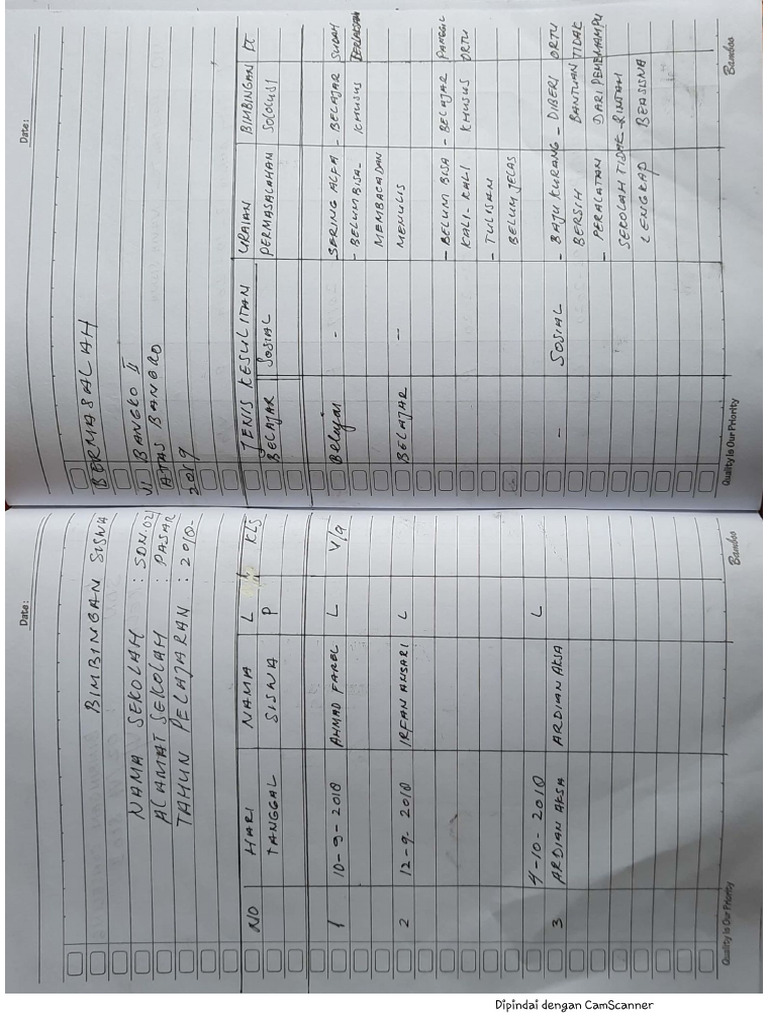 Date:
BIMBINGAN SISWA BERMASALAH
NAMA SEKOLAH : SDN.02/VI BANGKO II
ALAMAT SEKOLAH : PASAR ATAS BANGKO
TAHUN PELAJARAN : 2018-2019
NO HARI NAMA L KLS
TANGGAL SISWA P
1 10-9-2018 AHMAD FAREL L V/a
2 12-9-2018 IRFAN ANSARI L
4-10-2018 L
3 ARDIAN AKSA ARDIAN AKSA
Quality Is Our Priority
Bamboo
Date:
JENIS KESULITAN URAIAN BIMBINGAN
BELAJAR SOSIAL PERMASALAHAN SOLOUSI
Belajar - SERING ALFA - BELAJAR SUDAH
- BELUM BISA - KHUSUS
MEMBACA DAN
BELAJAR - MENULIS
- BELUM BISA - BELAJAR PANGGIL
KALI-KALI KHUSUS ORTU
- TULISAN
BELUM JELAS
- SOSIAL - BAJU KURANG - DIBERI ORTU
BERSIH BANTUAN TIDAK
- PERALATAN DARI PEMEMAMPU
SEKOLAH TIDAK - RINTAH
LENGKAP BEASISWA
Quality Is Our Priority
Bamboo
Dipindai dengan CamScanner